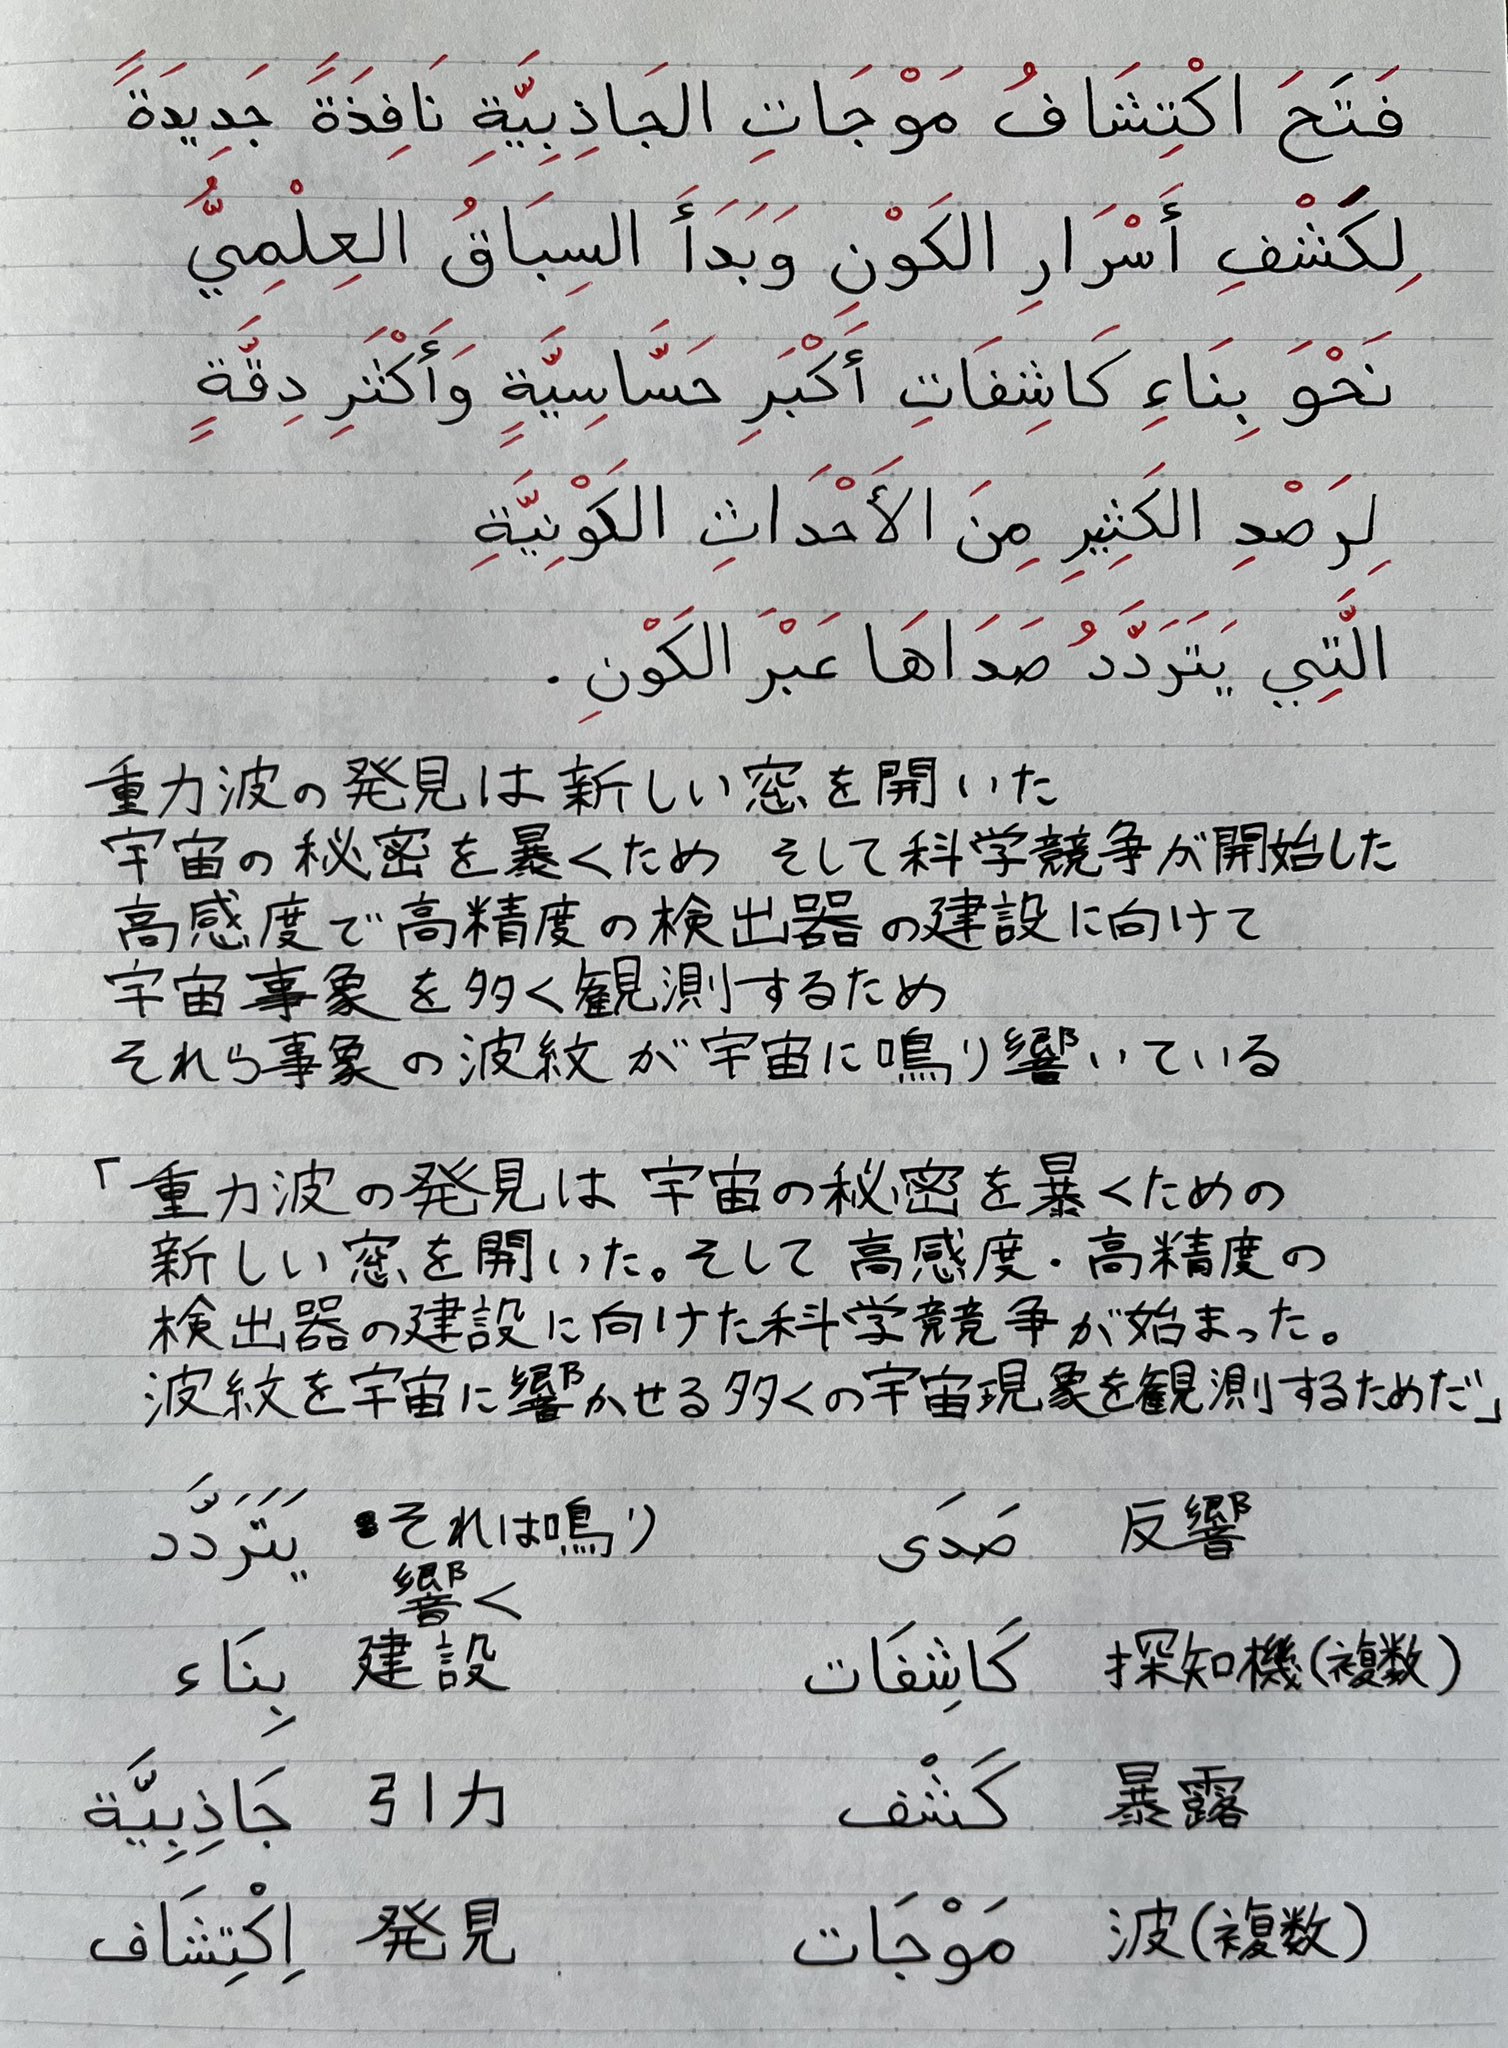 فَتَحَ اكْتِشَافُ مَوْجَاتِ الجَاذِبِيَّةِ نَافِذَةً جَدِيدَةً
لِكَشْفِ أَسْرَارِ الكَوْنِ وَبَدَأَ السِبَاقُ العِلْمِيُّ
نَحْوَ بِنَاءِ كَاشِفَاتِ أَكْبَرِ حَسَّاسِيَّةٍ وَأَكْثَرِ دِقَّةٍ
لِرَصْدِ الكَثِيرِ مِنَ الأَحْدَاثِ الكَوْنِيَّةِ
الَّتِي يَتَرَدَّدُ صَدَاهَا عَبْرَ الكَوْنِ.
重力波の発見は新しい窓を開いた
宇宙の秘密を暴くため そして科学競争が開始した
高感度で高精度の検出器の建設に向けて
宇宙事象を多く観測するため
それら事象の波紋が宇宙に鳴り響いている
「重力波の発見は宇宙の秘密を暴くための
新しい窓を開いた。そして高感度・高精度の
検出器の建設に向けた科学競争が始まった。
波紋を宇宙に響かせる多くの宇宙現象を観測するためだ」
يَتَرَدَّد それは鳴り響く صَدَى 反響
بِنَاء 建設 كَاشِفَات 探知機(複数)
جَاذِبِيَّة 引力 كَشْف 暴露
اِكْتِشَاف 発見 مَوْجَات 波(複数)